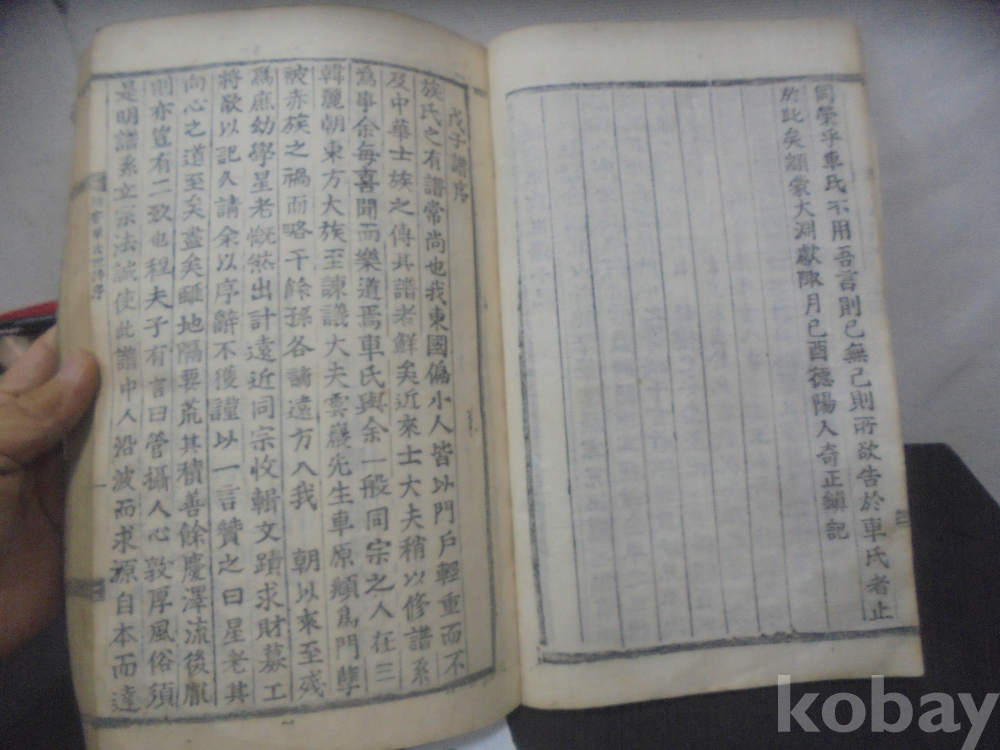 同榮乎車氏不用吾言則已無已則所欲告於車氏者止
於此矣顓蒙大淵獻陬月己酉德陽人奇正鎭記
戊子譜序
族氏之有譜常尚也我東國偏小人皆以門戶輕重而不
及中華士族之傳其譜者鮮矣近來士大夫稍以修譜系
爲事余每喜聞而樂道焉車氏與余一般同宗之人在三
韓麗朝東方大族至諫議大夫雲巖先生車原頫爲門孽
被赤族之禍而略干餘孫各謫遠方入我 朝以來至殘
爲庶幼學星老慨然出計遠近同宗收輯文蹟求財募工
將欲以記久請余以序辭不獲謹以一言贊之曰星老其
向心之道至矣盡矣雖地隔要荒其積善餘慶澤流後胤
則亦豈有二致也程夫子有言曰管攝人心敦厚風俗須
是明譜系立宗法誠使此譜中人沿波而求源自本而達
譜序
kobay